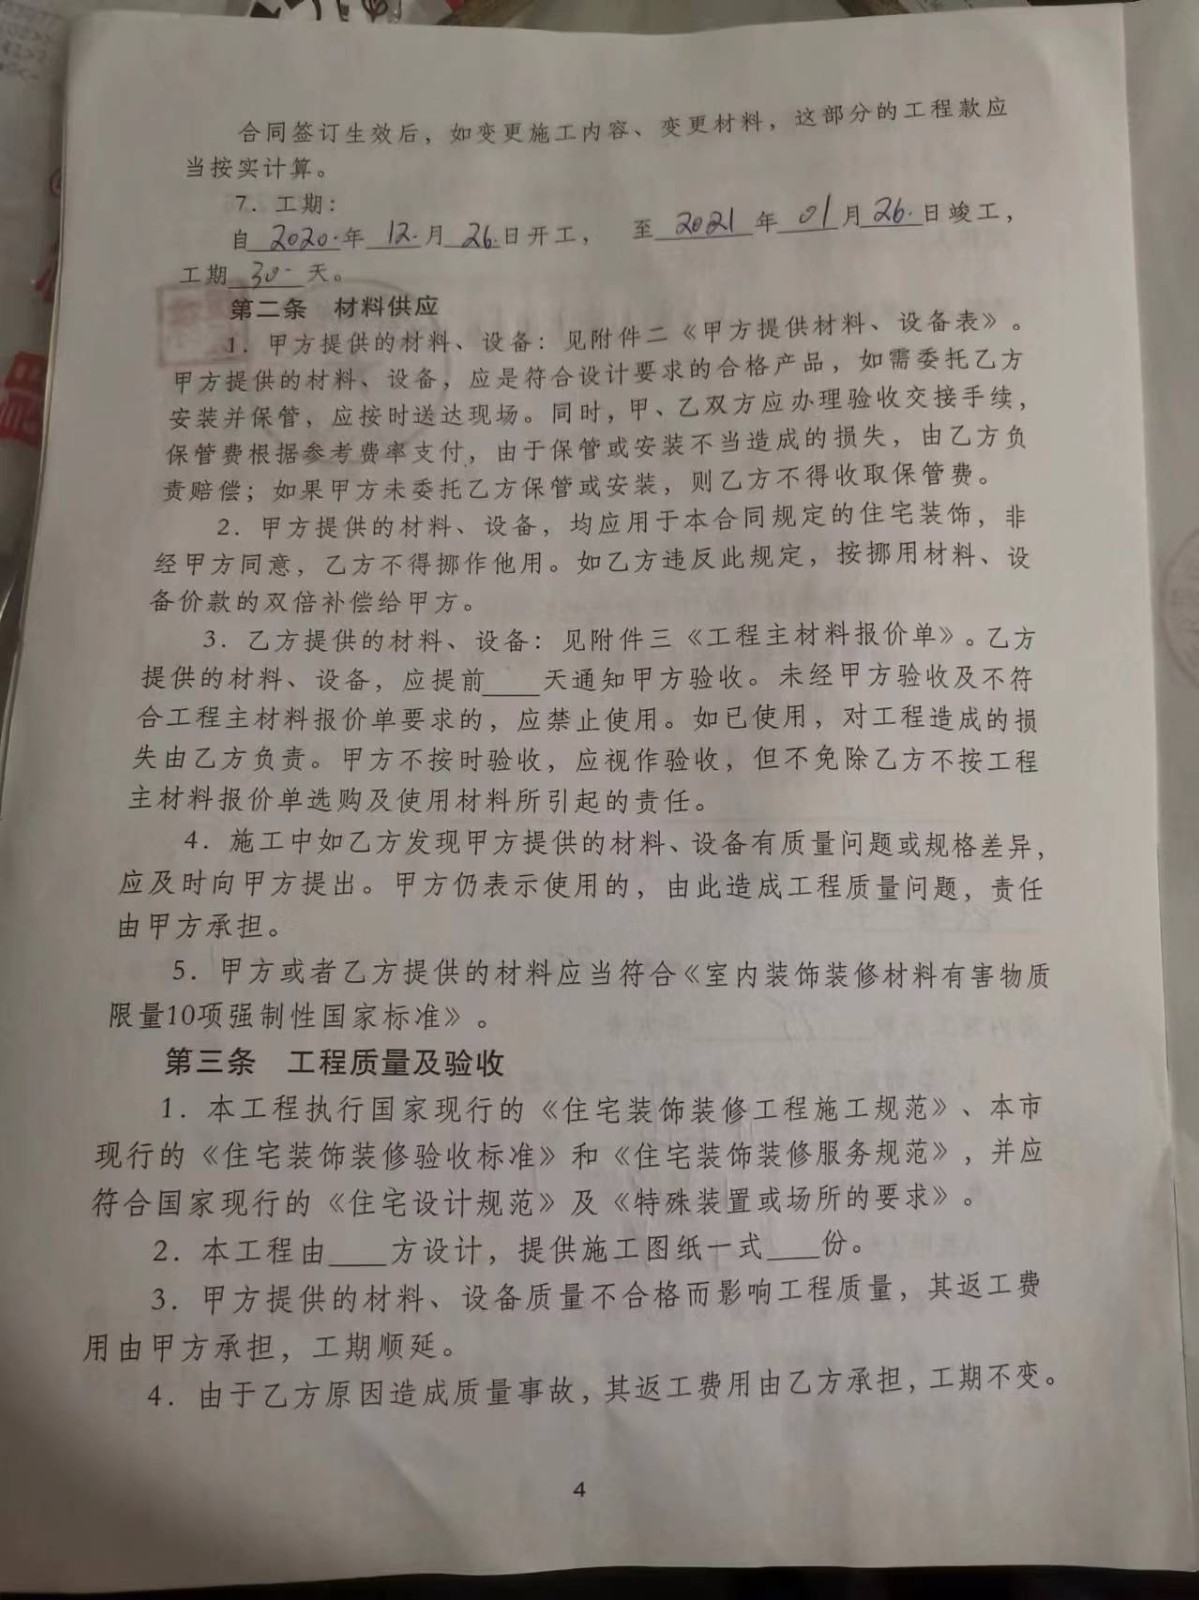 合同签订生效后，如变更施工内容、变更材料，这部分的工程款应
当按实计算。
7．工期：
自2020.年12.月26.日开工， 至2021年01月26.日竣工，
工期30天。
第二条 材料供应
1．甲方提供的材料、设备：见附件二《甲方提供材料、设备表》。
甲方提供的材料、设备，应是符合设计要求的合格产品，如需委托乙方
安装并保管，应按时送达现场。同时，甲、乙双方应办理验收交接手续，
保管费根据参考费率支付，由于保管或安装不当造成的损失，由乙方负
责赔偿；如果甲方未委托乙方保管或安装，则乙方不得收取保管费。
2．甲方提供的材料、设备，均应用于本合同规定的住宅装饰，非
经甲方同意，乙方不得挪作他用。如乙方违反此规定，按挪用材料、设
备价款的双倍补偿给甲方。
3．乙方提供的材料、设备：见附件三《工程主材料报价单》。乙方
提供的材料、设备，应提前____天通知甲方验收。未经甲方验收及不符
合工程主材料报价单要求的，应禁止使用。如已使用，对工程造成的损
失由乙方负责。甲方不按时验收，应视作验收，但不免除乙方不按工程
主材料报价单选购及使用材料所引起的责任。
4．施工中如乙方发现甲方提供的材料、设备有质量问题或规格差异，
应及时向甲方提出。甲方仍表示使用的，由此造成工程质量问题，责任
由甲方承担。
5．甲方或者乙方提供的材料应当符合《室内装饰装修材料有害物质
限量10项强制性国家标准》。
第三条 工程质量及验收
1．本工程执行国家现行的《住宅装饰装修工程施工规范》、本市
现行的《住宅装饰装修验收标准》和《住宅装饰装修服务规范》，并应
符合国家现行的《住宅设计规范》及《特殊装置或场所的要求》。
2．本工程由____方设计，提供施工图纸一式____份。
3．甲方提供的材料、设备质量不合格而影响工程质量，其返工费
用由甲方承担，工期顺延。
4．由于乙方原因造成质量事故，其返工费用由乙方承担，工期不变。
4